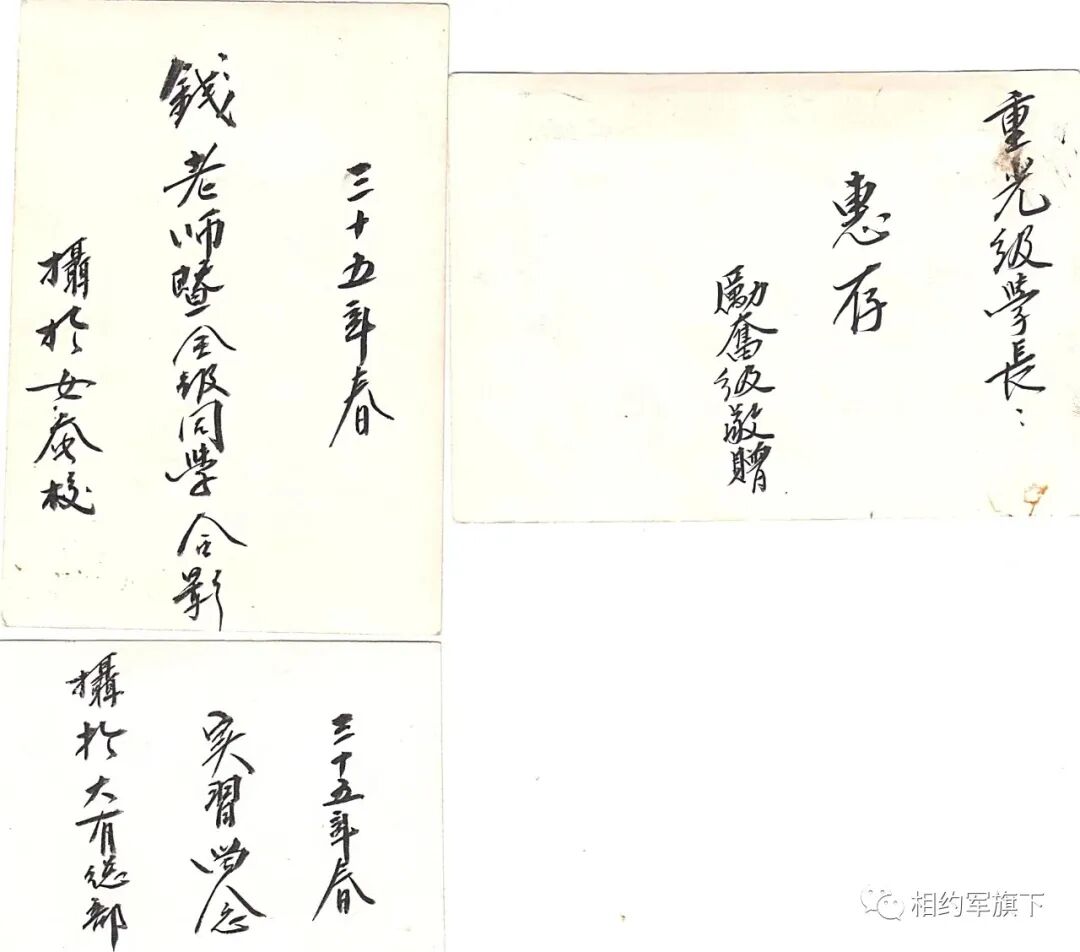 三十五年春
錢老师暨全级同学合影
攝於女蚕校
重光级学長：
惠存
勵奮级敬贈
三十五年春
实習留念
攝於大有总部
相约军旗下